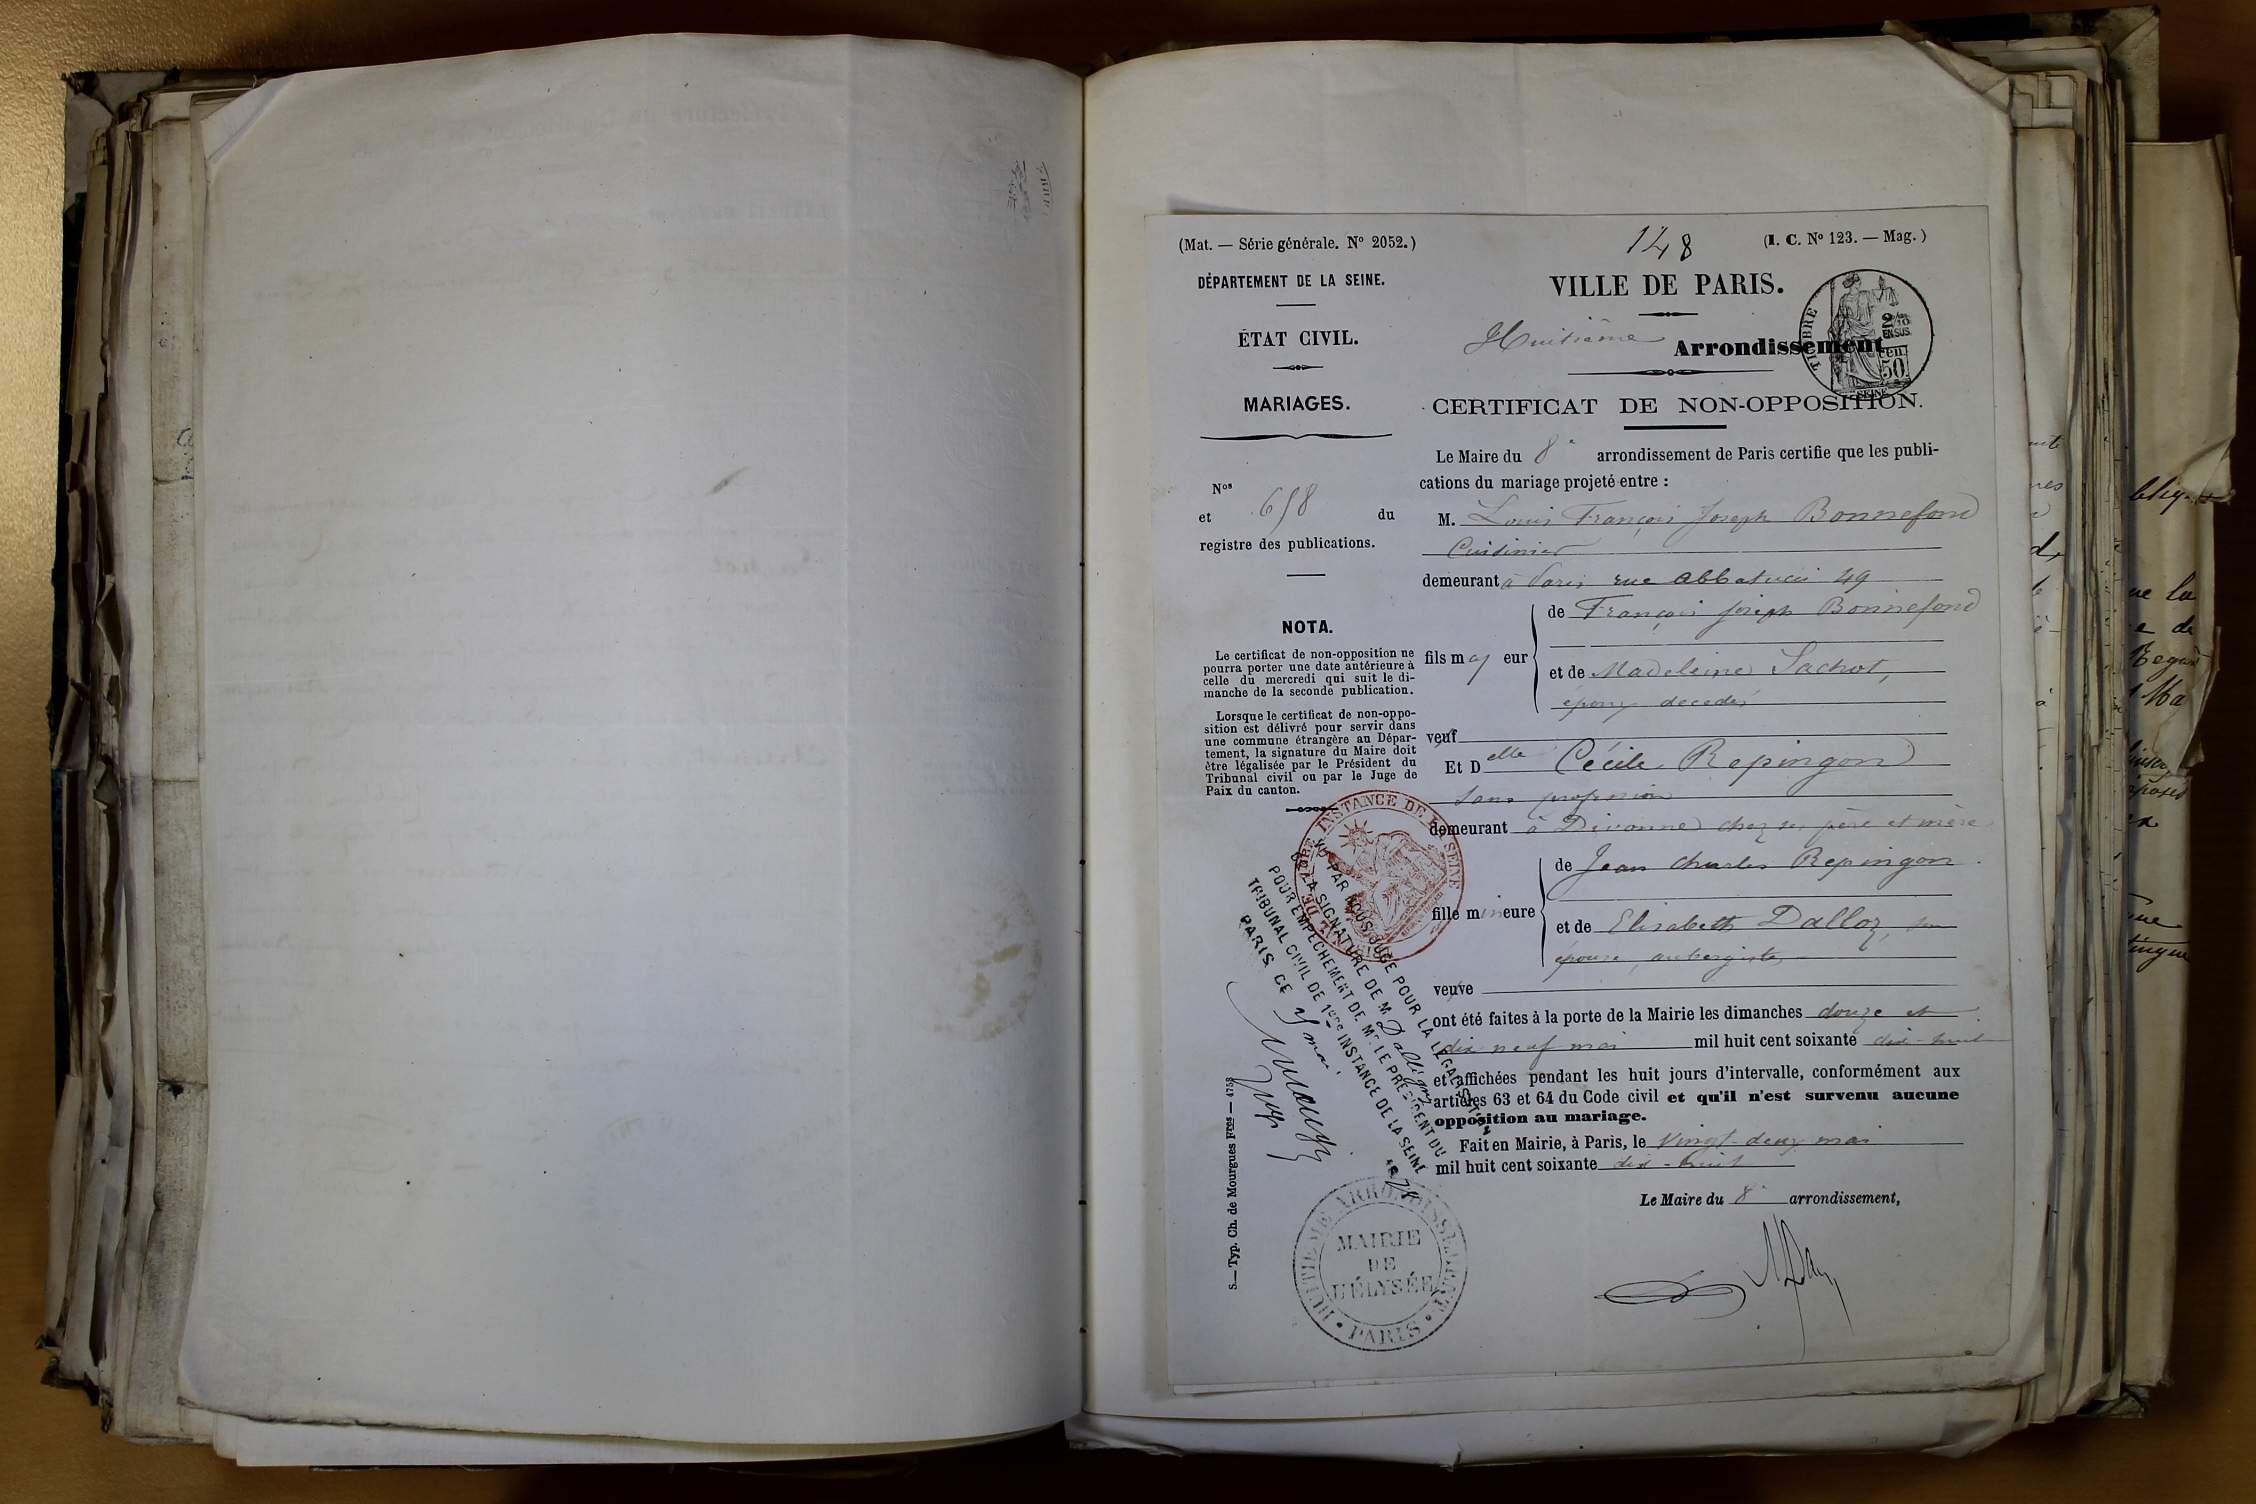 (Mat. — Série générale. Nº 2052.)
148
(I. C. Nº 123. — Mag.)
DÉPARTEMENT DE LA SEINE.
ÉTAT CIVIL.
MARIAGES.
Nos
et 658 du
registre des publications.
NOTA.
Le certificat de non-opposition ne
pourra porter une date antérieure à
celle du mercredi qui suit le di-
manche de la seconde publication.
Lorsque le certificat de non-oppo-
sition est délivré pour servir dans
une commune étrangère au Dépar-
tement, la signature du Maire doit
être légalisée par le Président du
Tribunal civil ou par le Juge de
Paix du canton.
VILLE DE PARIS.
Huitième Arrondissement
TIMBRE
2/10
EN SUS.
50
SEINE
CERTIFICAT DE NON-OPPOSITION.
Le Maire du 8e arrondissement de Paris certifie que les publi-
cations du mariage projeté entre :
M. Louis François Joseph Bonnefond
Cuisinier
demeurant à Paris rue abbatucci 49
de François Joseph Bonnefond
fils maj eur
et de Madeleine Sachot,
époux décédés
veuf
Et Delle Cécile Repingon
Sans profession
demeurant à Divonne chez ses père et mère
de Jean Charles Repingon
fille mineure
et de Elisabeth Dalloz, son
épouse, aubergistes
veuve
ont été faites à la porte de la Mairie les dimanches douze et
dix neuf mai mil huit cent soixante dix-huit
et affichées pendant les huit jours d'intervalle, conformément aux
articles 63 et 64 du Code civil et qu'il n'est survenu aucune
opposition au mariage.
Fait en Mairie, à Paris, le vingt-deux mai
mil huit cent soixante dix-huit
Le Maire du 8e arrondissement,
VU PAR NOUS JUGE POUR LA LÉGALISATION
DE LA SIGNATURE DE M
POUR EMPÊCHEMENT DE Mr LE PRÉSIDENT DU
TRIBUNAL CIVIL DE 1ère INSTANCE DE LA SEINE
PARIS, CE mai 1878
INSTANCE DE LA SEINE
HUITIEME ARRONDISSEMENT
MAIRIE
DE
L'ÉLYSÉE
PARIS
S.— Typ. Ch. de Mourgues Fres — 4758